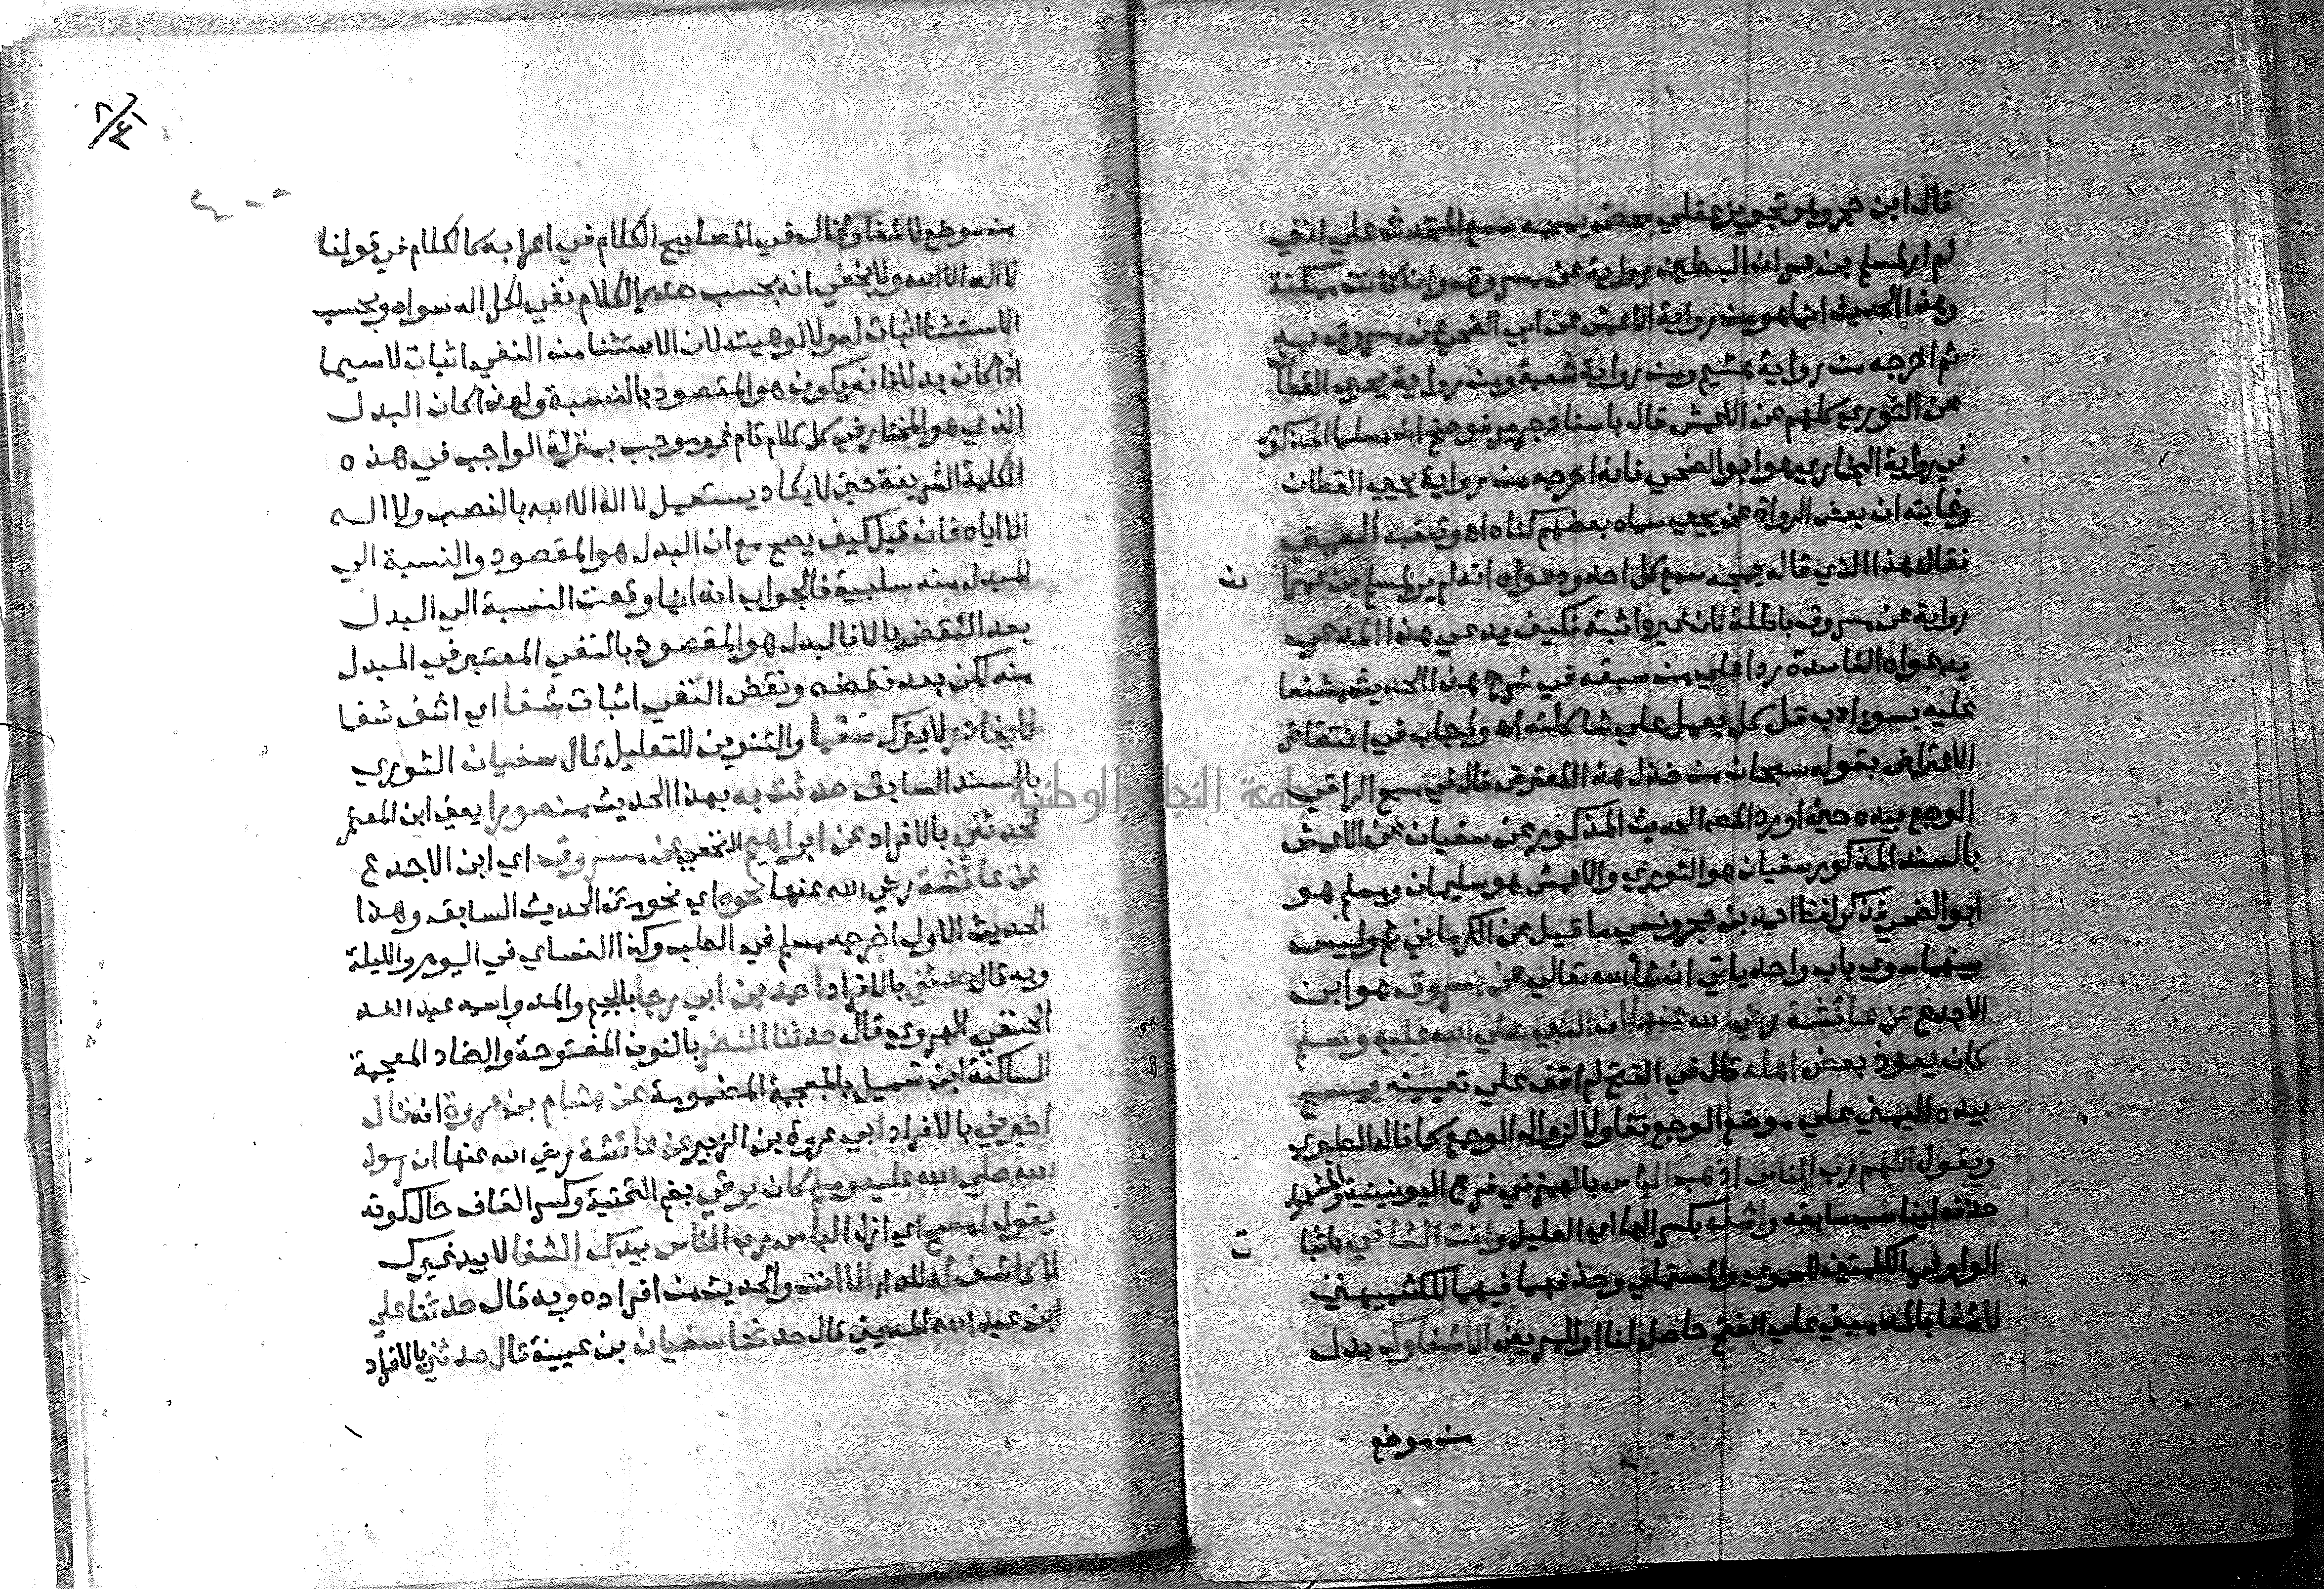 قال ابن حجر وهو تجويز عقلي محض يمجه سمع المحدث علي انني
لم ار لمسلم بن عمران البطين رواية عن مسروق وان كانت ممكنة
وهذا الحديث انما هو من رواية الاعمش عن ابي الضحي عن مسروق به
ثم اخرجه من رواية هشيم ومن رواية شعبة ومن رواية يحيي القطان
عن الثوري كلهم عن الاعمش قال باسناد جرير فوضح ان مسلما المذكور
في رواية البخاري هو ابو الضحي فانه اخرجه من رواية يحيي القطان
وغايته ان بعض الرواة عن يحيي سماه وبعضهم كناه اه وتعقبه العيني
فقال هذا الذي قاله يمجه سمع كل احد ودعواه انه لم ير لمسلم بن عمرا
ن
رواية عن مسروق باطلة لان غيره اثبته فكيف يدعي هذا المدعي
بدعواه الفاسدة ردا علي من سبقه في شرح هذا الحديث مشنعا
عليه بسوء ادب قل كل يعمل علي شاكلته اه واجاب في انتقاض
الاعتراض بقوله سبحان من خذل هذا المعترض قال في مسح الراقي
الوجع بيده حين اورد المص الحديث المذكور عن سفيان عن الاعمش
بالسند المذكور سفيان هو الثوري والاعمش هو سليمان ومسلم هو
ابو الضحي فذكر لفظ احمد بن حجر ونسي ما قيل عن الكرماني ثم وليس
بينهما سوي باب واحد ياتي ان شا الله تعالي عن مسروق هو ابن
الاجدع عن عائشة رضي الله عنها ان النبي صلي الله عليه وسلم
كان يعوذ بعض اهله قال في الفتح لم اقف علي تعيينه يمسح
بيده اليمني علي موضع الوجع تفاولا لزوال الوجع كما قاله الطبري
ويقول اللهم رب الناس اذهب الباس بالهمز في فرع اليونينية والمشهور
حذفه ليناسب سابقه واشفه بكسر الهاء اي العليل وانت الشافي باثبا
ت
الواو في الكلمتين للحموي والمستملي وحذفهما فيهما للكشميهني
لا شفا بالمد مبني علي الفتح حاصل لنا او للمريض الا شفاوك بدل
من موضع
من موضع لا شفا وقال في المصابيح الكلام في اعرابه كالكلام في قولنا
لا اله الا الله ولا يخفي انه بحسب صدر الكلام نفي لكل اله سواه وبحسب
الاستثنا اثبات له ولالوهيته لان الاستثنا من النفي اثبات لا سيما
اذا كان بدلا فانه يكون هو المقصود بالنسبة ولهذا كان البدل
الذي هو المختار في كل كلام تام غير موجب بمنزلة الواجب في هذه
الكلمة الشريفة حتي لا يكاد يستعمل لا اله الا الله بالنصب ولا اله
الا اياه فان قيل كيف يصح مع ان البدل هو المقصود والنسبة الي
المبدل منه سلبية فالجواب انه انما وقعت النسبة الي البدل
بعد النقض بالا فالبدل هو المقصود بالنفي المعتبر في المبدل
منه لكن بعد نقضه ونقض النفي اثبات شفا اي اشف شفا
لا يغادر لا يترك سقما والتنوين للتقليل قال سفيان الثوري
بالسند السابق حدثت به بهذا الحديث منصورا يعني ابن المعتمر
فحدثني بالافراد عن ابراهيم النخعي عن مسروق اي ابن الاجدع
عن عائشة رضي الله عنها نحوه اي نحو متن الحديث السابق وهذا
الحديث الاول اخرجه مسلم في الطب وكذا النساي في اليوم والليلة
وبه قال حدثني بالافراد احمد بن ابي رجا بالجيم والمد واسمه عبد الله
الحنفي الهروي قال حدثنا النضر بالنون المفتوحة والضاد المعجمة
الساكنة ابن شميل بالمعجمة المضمومة عن هشام بن عروة انه قال
اخبرني بالافراد ابي عروة بن الزبير عن عائشة رضي الله عنها ان رسول
الله صلي الله عليه وسلم كان يرقي بفتح التحتية وكسر القاف حال كونه
يقول امسح اي ازل الباس رب الناس بيدك الشفا لا بيد غيرك
لا كاشف له للداء الا انت والحديث من افراده وبه قال حدثنا علي
ابن عبد الله المديني قال حدثنا سفيان بن عيينة قال حدثني بالافراد
جامعة النجاح الوطنية